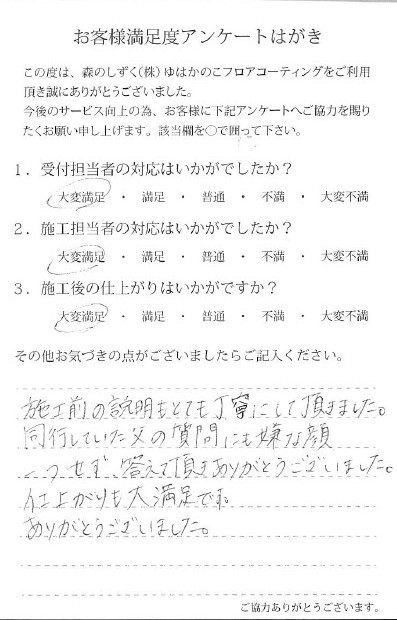 お客様満足度アンケートはがき
この度は、森のしずく(株)ゆはかのこフロアコーティングをご利用
頂き誠にありがとうございました。
今後のサービス向上の為、お客様に下記アンケートへご協力を賜り
たくお願い申し上げます。該当欄を○で囲って下さい。
1．受付担当者の対応はいかがでしたか？
大変満足 ・ 満足 ・ 普通 ・ 不満 ・ 大変不満
2．施工担当者の対応はいかがでしたか？
大変満足 ・ 満足 ・ 普通 ・ 不満 ・ 大変不満
3．施工後の仕上がりはいかがですか？
大変満足 ・ 満足 ・ 普通 ・ 不満 ・ 大変不満
その他お気づきの点がございましたらご記入ください。
施工前の説明もとても丁寧にして頂きました。
同行していた父の質問にも嫌な顔
一つせず、答えて頂きありがとうございました。
仕上がりも大満足です。
ありがとうございました。
ご協力ありがとうございます。